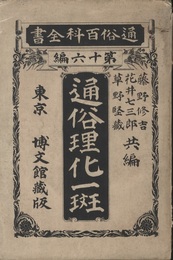 通俗百科全書
第十六編
藤野修吉
花井七三郎
草野竪蔵
共編
通俗理化一斑
東京 博文館蔵版